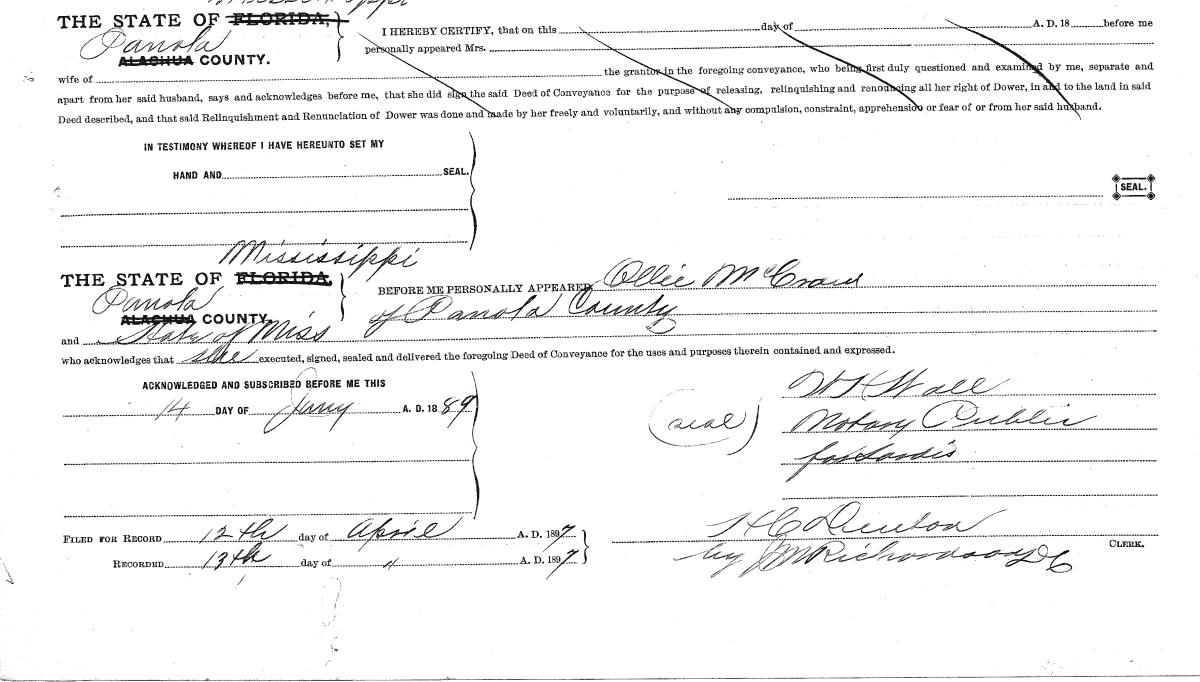 Mississippi
THE STATE OF FLORIDA,
Panola
ALACHUA COUNTY.
I HEREBY CERTIFY, that on this day of A. D. 18 before me
personally appeared Mrs.
wife of the grantor in the foregoing conveyance, who being first duly questioned and examined by me, separate and
apart from her said husband, says and acknowledges before me, that she did sign the said Deed of Conveyance for the purpose of releasing, relinquishing and renouncing all her right of Dower, in and to the land in said
Deed described, and that said Relinquishment and Renunciation of Dower was done and made by her freely and voluntarily, and without any compulsion, constraint, apprehension or fear of or from her said husband.
IN TESTIMONY WHEREOF I HAVE HEREUNTO SET MY
HAND AND SEAL.
SEAL.
Mississippi
THE STATE OF FLORIDA,
Panola
ALACHUA COUNTY.
BEFORE ME PERSONALLY APPEARED Ollie McCraw
of Panola County
and State of Miss
who acknowledges that she executed, signed, sealed and delivered the foregoing Deed of Conveyance for the uses and purposes therein contained and expressed.
ACKNOWLEDGED AND SUBSCRIBED BEFORE ME THIS
14 DAY OF Jany A. D. 1889
(seal)
Wall
Notary Public
for Sardis
FILED FOR RECORD 12th day of April A. D. 1897
RECORDED 13th day of " A. D. 1897
H C Denton
CLERK.
by J M Richardson DC